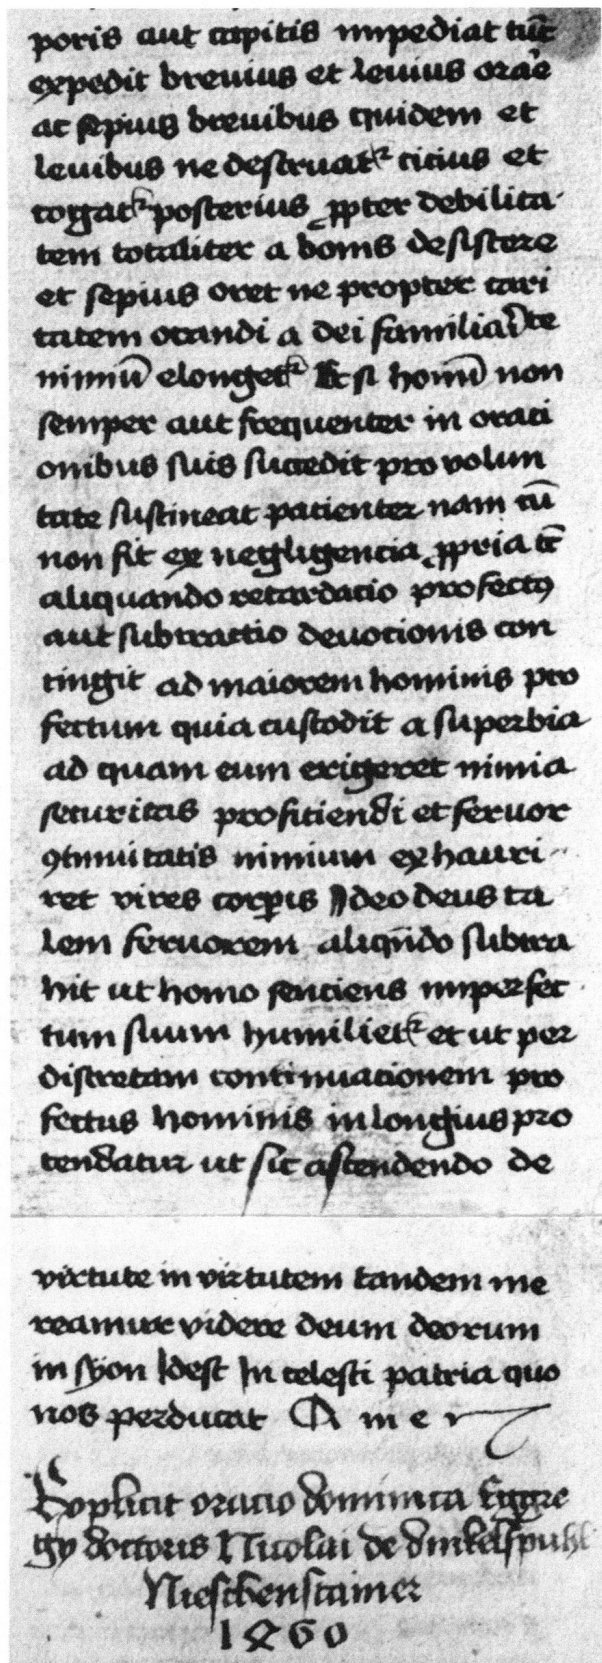 poris aut capitis impediat tu᷑c
expedit breuius et leuius orar̃e
ac sepius breuibus quidem et
leuibus ne destruatꝰ cicius et
cogatꝰ posterius ꝓpter debilita
tem totaliter a bonis desistere
et sepius oret ne propter rari
tatem orandi a dei familiari͂te
nimiū elongetꝰ Et si homī non
semper aut frequenter in oraci
onibus suis succedit pro volun
tate sustineat pacienter nam cū
non fit ex negligencia ꝓpria tc̄
aliquando retardacio profectꝰ
aut subtractio deuocionis con
tingit ad maiorem hominis pro
fectum quia custodit a superbia
ad quam eum erigeret nimia
securitas proficiendi et feruor
ꝯtinuitatis nimium exhauri
ret vires corꝑis Ideo deus ta
lem feruorem aliqn̄do subtra
hit ut homo senciens imperfec
tum suum humilietꝰ et ut per
discretam continuacionem pro
fectus hominis in longius pro
tendatur ut sic ascendendo de
virtute in virtutem tandem me
reamur videre deum deorum
in syon Idest In celesti patria quo
nos perducat Amen
Explicit oracio dominica Eggre
gy doctoris Nicolai de dinkelspuhl
Nieschenstainer
1460